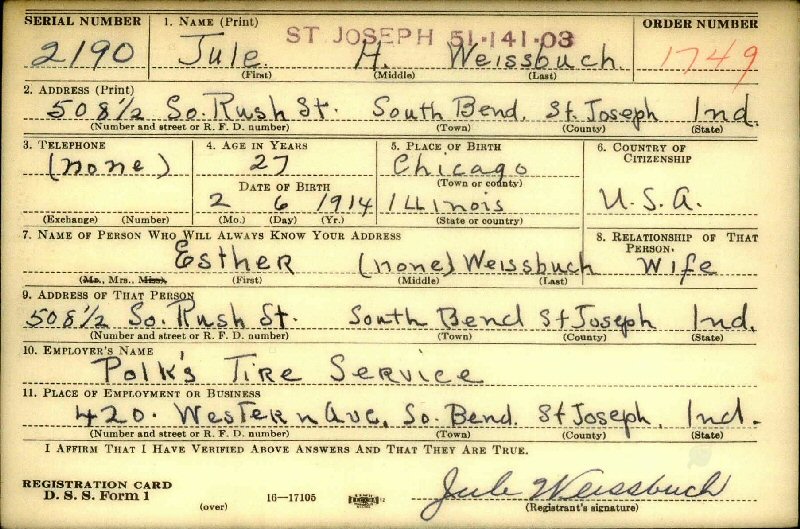 SERIAL NUMBER 1. NAME (Print) ORDER NUMBER
ST JOSEPH 51-141-03
2190 Jule H. Weissbuch 1749
(First) (Middle) (Last)
2. ADDRESS (Print)
508½ So. Rush St. South Bend, St. Joseph Ind.
(Number and street or R. F. D. number) (Town) (County) (State)
3. TELEPHONE 4. AGE IN YEARS 5. PLACE OF BIRTH 6. COUNTRY OF CITIZENSHIP
(none) 27 Chicago
(Town or county)
DATE OF BIRTH
2 6 1914 Illinois U.S.A.
(Exchange) (Number) (Mo.) (Day) (Yr.) (State or country)
7. NAME OF PERSON WHO WILL ALWAYS KNOW YOUR ADDRESS 8. RELATIONSHIP OF THAT PERSON
Esther (none) Weissbuch Wife
(Mr., Mrs., Miss) (First) (Middle) (Last)
9. ADDRESS OF THAT PERSON
508½ So. Rush St. South Bend St Joseph Ind.
(Number and street or R. F. D. number) (Town) (County) (State)
10. EMPLOYER'S NAME
Polk's Tire Service
11. PLACE OF EMPLOYMENT OR BUSINESS
420. Western Ave. So. Bend. St Joseph. Ind.
(Number and street or R. F. D. number) (Town) (County) (State)
I AFFIRM THAT I HAVE VERIFIED ABOVE ANSWERS AND THAT THEY ARE TRUE.
REGISTRATION CARD
D. S. S. Form 1
(over) 16—17105
Jule Weissbuch
(Registrant's signature)